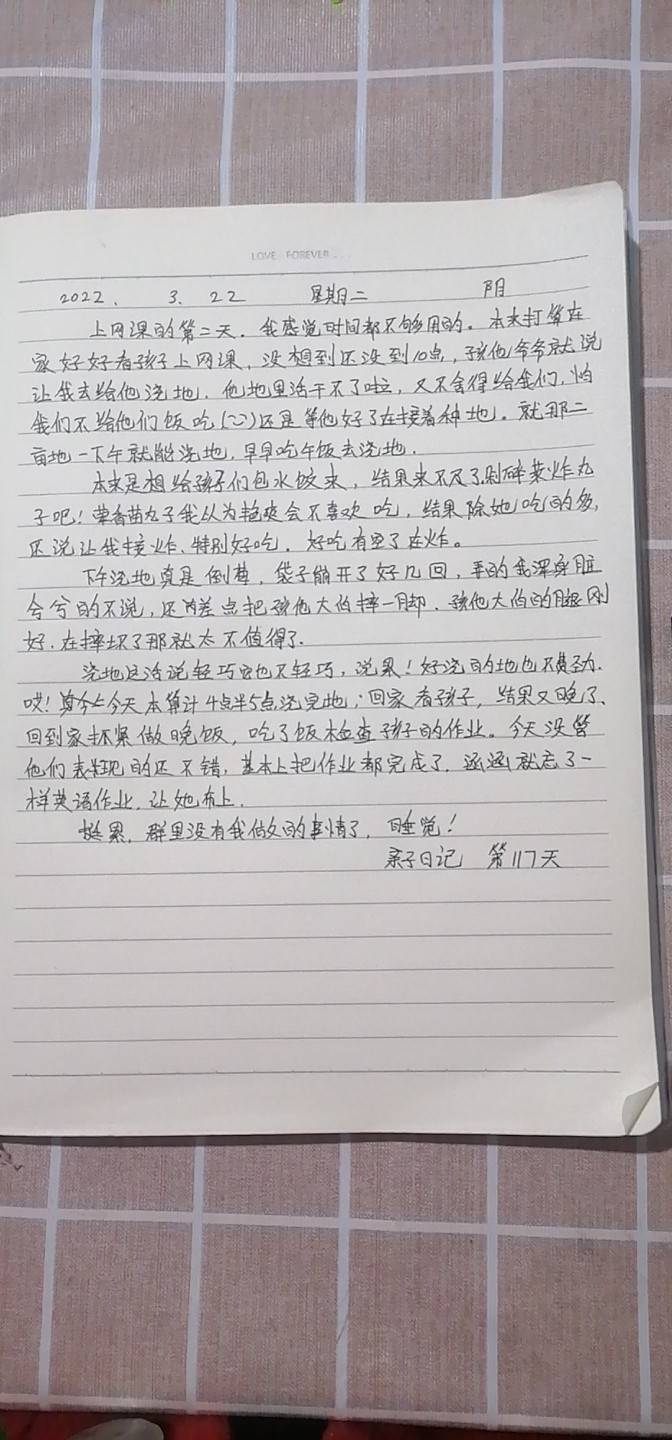 LOVE FOREVER...
2022. 3. 22 星期二 阴
上网课的第二天. 我感觉时间都不够用的。本来打算在
家好好看孩子上网课, 没想到还没到10点, 孩他爷爷就说
让我去给他浇地. 他地里活干不了啦, 又不舍得给我们, 怕
我们不给他们饭吃()还是等他好了在接着种地。就那二
亩地一下午就能浇地, 早早吃午饭去浇地.
本来是想给孩子们包水饺来, 结果来不及了, 剁碎菜炸丸
子吧! 茴香苗丸子我以为艳爽会不喜欢吃, 结果除她吃的多,
还说让我接炸、特别好吃. 好吃有空了在炸。
下午浇地真是倒楣, 袋子崩开了好几回, 弄的我浑身脏
兮兮的不说, 还差点把孩他大伯摔一脚. 孩他大伯的腿刚
好. 在摔坏了那就太不值得了.
浇地这活说轻巧也不轻巧, 说累! 好浇的地也不费劲.
哎! 今天本算计4点半5点浇完地; 回家看孩子, 结果又晚了、
回到家抓紧做晚饭, 吃了饭检查孩子的作业。今天没管
他们表现的还不错, 基本上把作业都完成了. 涵涵就忘了一
样英语作业. 让她布上.
挺累. 群里没有我做的事情了, 睡觉!
亲子日记 第117天